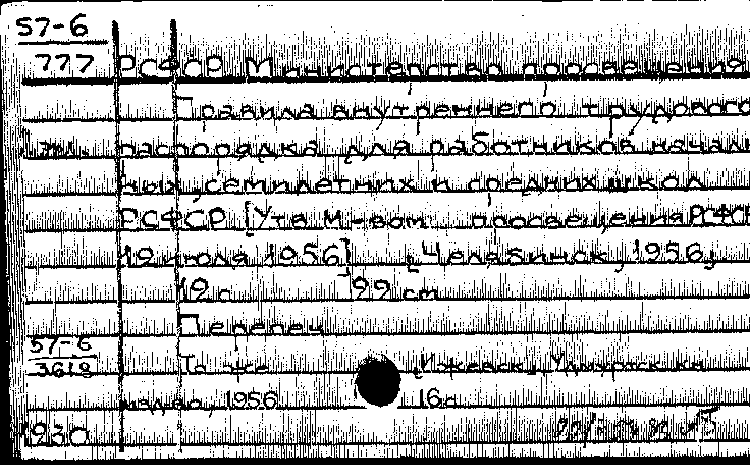 57-6
777 РСФСР Министерство просвещения
Правила внутреннего трудового
распорядка для работников началь
ных, семилетних и средних школ
РСФСР [Утв. М-вом просвещения РСФСР
19 июля 1956] [Челябинск, 1956]
19 с. 22 см
Перепеч.
57-6
3618 То же [Ижевск], Удмуртск. кн.
изд-во, 1956 16 с.
1930